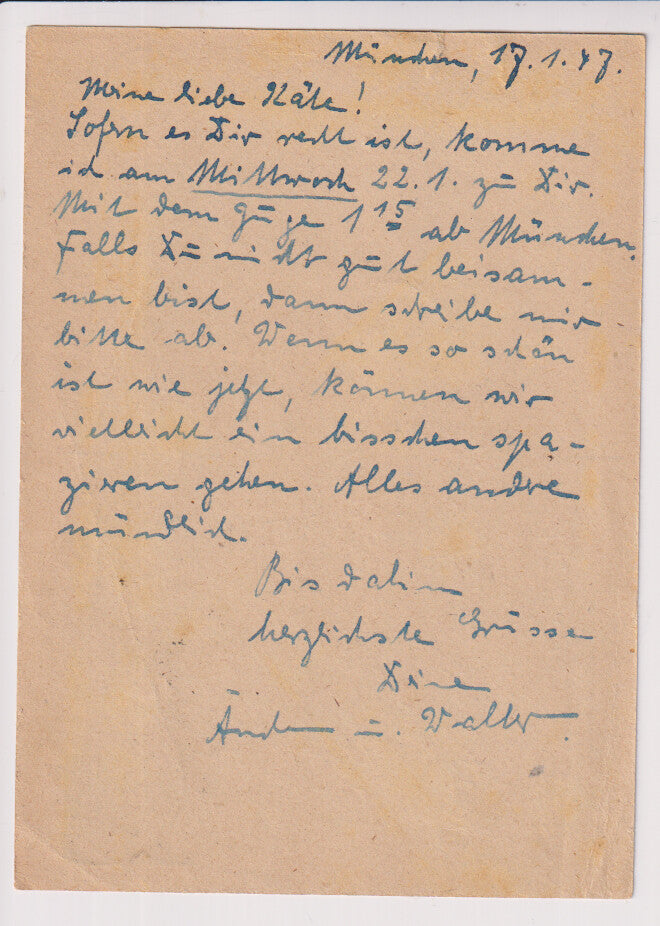 München, 17.1.47.
Meine liebe Käte!
Sofern es Dir recht ist, komme
ich am Mittwoch 22.1. zu Dir.
Mit dem Zuge 1 15 ab München.
Falls Du nicht gut beisam-
men bist, dann schreibe mir
bitte ab. Wenn es so schön
ist wie jetzt, können wir
vielleicht ein bisschen spa-
zieren gehen. Alles andere
mündlich.
Bis dahin
herzlichste Grüsse
Deine
u. Walter.